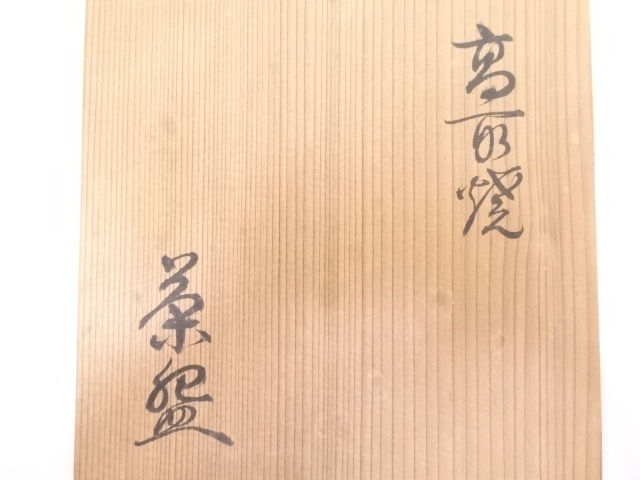 高取焼
茶盌